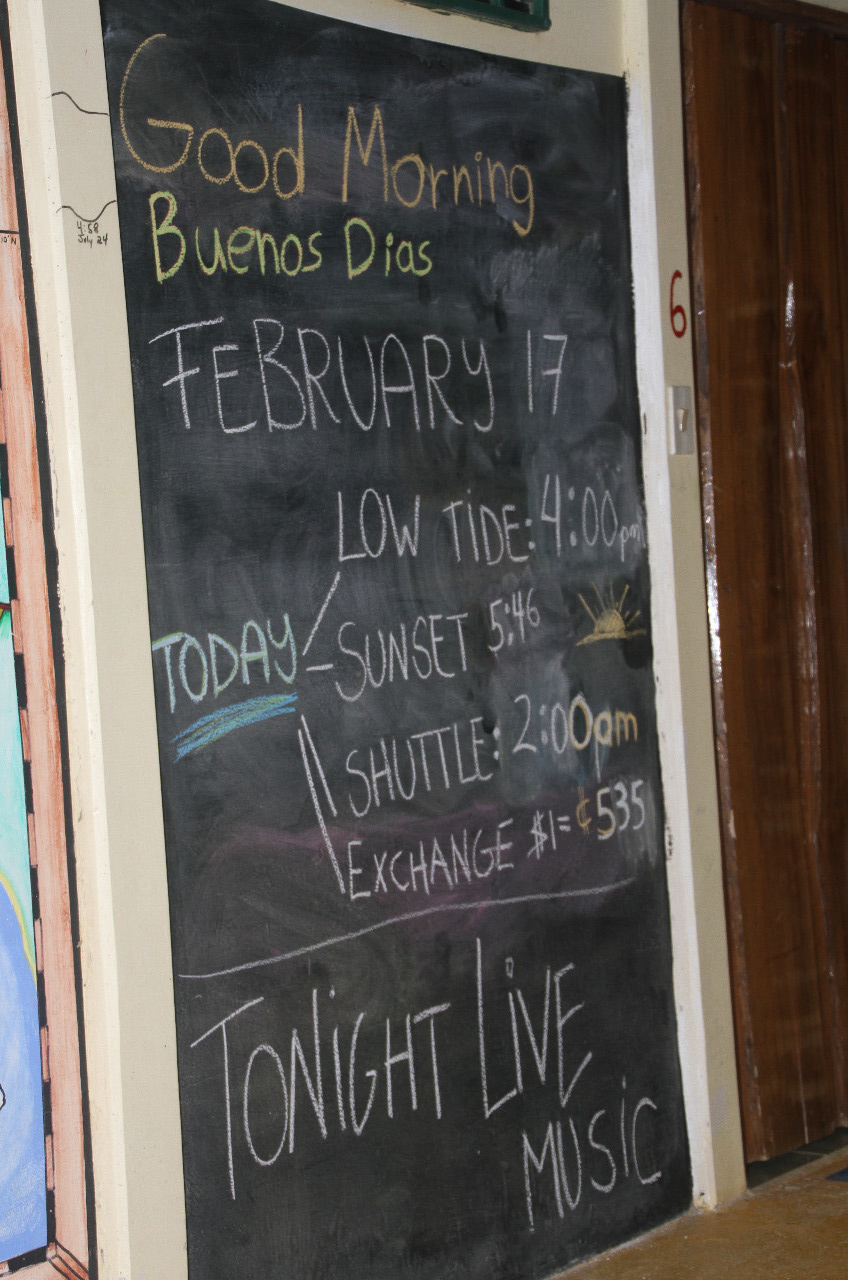 Good Morning
Buenos Dias
FEBRUARY 17
LOW TIDE: 4:00pm
TODAY
SUNSET 5:46
SHUTTLE: 2:00am
EXCHANGE $1= ¢535
TONiGHT LiVE
MUSiC
4:58
July 24
10°N
6